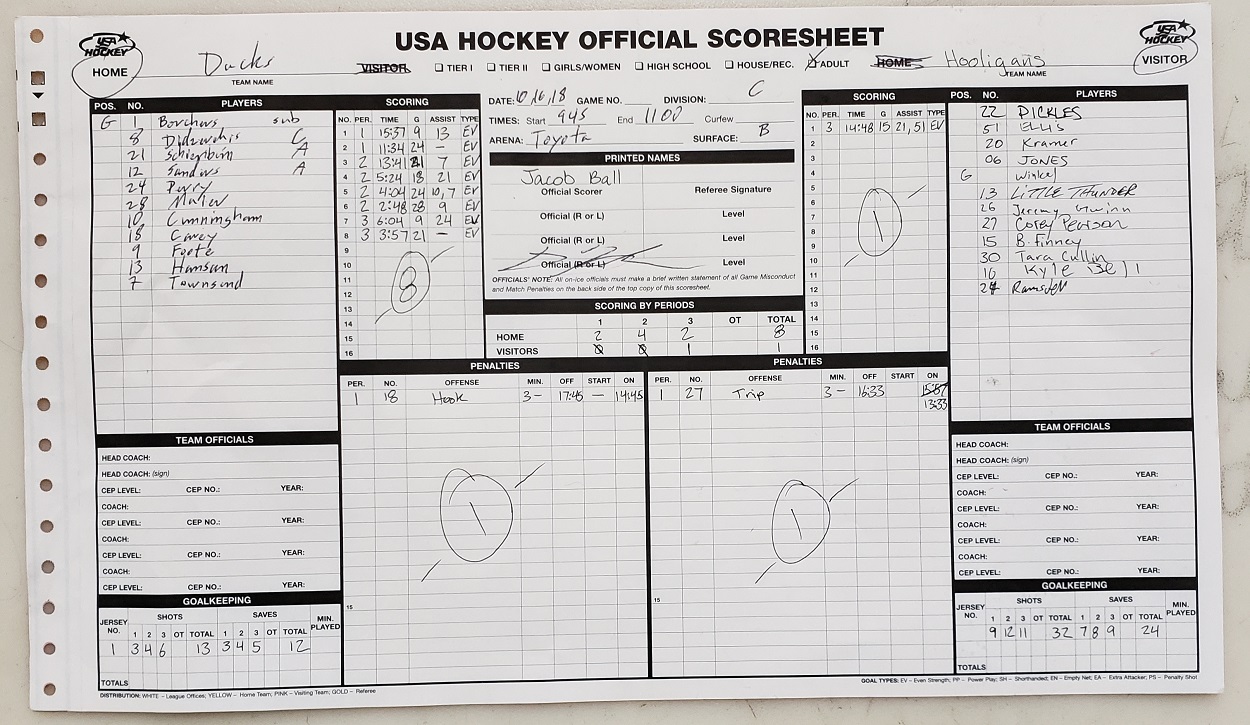 USA HOCKEY OFFICIAL SCORESHEET
USA HOCKEY
HOME
Ducks
TEAM NAME
VISITOR
☐ TIER I ☐ TIER II ☐ GIRLS/WOMEN ☐ HIGH SCHOOL ☐ HOUSE/REC. ☒ ADULT
HOME
Hooligans
TEAM NAME
USA HOCKEY
VISITOR
POS. NO. PLAYERS
G 1 Borchers sub
8 C
21 A
12 Sanders A
24 Perry
28
10 Cunningham
18 Carey
9 Foote
13 Hanson
7 Townsend
SCORING
NO. PER. TIME G ASSIST TYPE
1 1 15:37 9 13 EV
2 1 11:34 24 — EV
3 2 13:41 21 7 EV
4 2 5:24 18 21 EV
5 2 4:04 24 10, 7 EV
6 2 2:48 28 9 EV
7 3 6:04 9 24 EV
8 3 3:57 21 — EV
9
10
11
12
13
14
15
16
8
DATE: 10, 16, 18 GAME NO. DIVISION: C
TIMES: Start 945 End 1100 Curfew
ARENA: Toyota SURFACE: B
PRINTED NAMES
Jacob Ball
Official Scorer Referee Signature
Official (R or L) Level
Official (R or L) Level
Official (R or L) Level
OFFICIALS' NOTE: All on-ice officials must make a brief written statement of all Game Misconduct
and Match Penalties on the back side of the top copy of this scoresheet.
SCORING BY PERIODS
1 2 3 OT TOTAL
HOME 2 4 2 8
VISITORS 0 0 1 1
SCORING
NO. PER. TIME G ASSIST TYPE
1 3 14:48 15 21, 51 EV
2
3
4
5
6
7
8
9
10
11
12
13
14
15
16
1
POS. NO. PLAYERS
22 PICKLES
51 ELLIS
20 Kramer
06 JONES
G Winkel
13 LITTLE THUNDER
26 Jeremy Gwinn
27 Corey Pearson
15 B. Finney
30 Tara Cullin
16 Kyle Bell
24
PENALTIES
PER. NO. OFFENSE MIN. OFF START ON
1 18 Hook 3 – 17:45 — 14:45
1
15
PENALTIES
PER. NO. OFFENSE MIN. OFF START ON
1 27 Trip 3 – 16:33
13:33
1
15
TEAM OFFICIALS
HEAD COACH:
HEAD COACH: (sign)
CEP LEVEL: CEP NO.: YEAR:
COACH:
CEP LEVEL: CEP NO.: YEAR:
COACH:
CEP LEVEL: CEP NO.: YEAR:
COACH:
CEP LEVEL: CEP NO.: YEAR:
GOALKEEPING
JERSEY NO. SHOTS SAVES MIN. PLAYED
1 2 3 OT TOTAL 1 2 3 OT TOTAL
1 3 4 6 13 3 4 5 12
TOTALS
TEAM OFFICIALS
HEAD COACH:
HEAD COACH: (sign)
CEP LEVEL: CEP NO.: YEAR:
COACH:
CEP LEVEL: CEP NO.: YEAR:
COACH:
CEP LEVEL: CEP NO.: YEAR:
COACH:
CEP LEVEL: CEP NO.: YEAR:
GOALKEEPING
JERSEY NO. SHOTS SAVES MIN. PLAYED
1 2 3 OT TOTAL 1 2 3 OT TOTAL
9 12 11 32 7 8 9 24
TOTALS
DISTRIBUTION: WHITE – League Offices; YELLOW – Home Team; PINK – Visiting Team; GOLD – Referee
GOAL TYPES: EV – Even Strength; PP – Power Play; SH – Shorthanded; EN – Empty Net; EA – Extra Attacker; PS – Penalty Shot